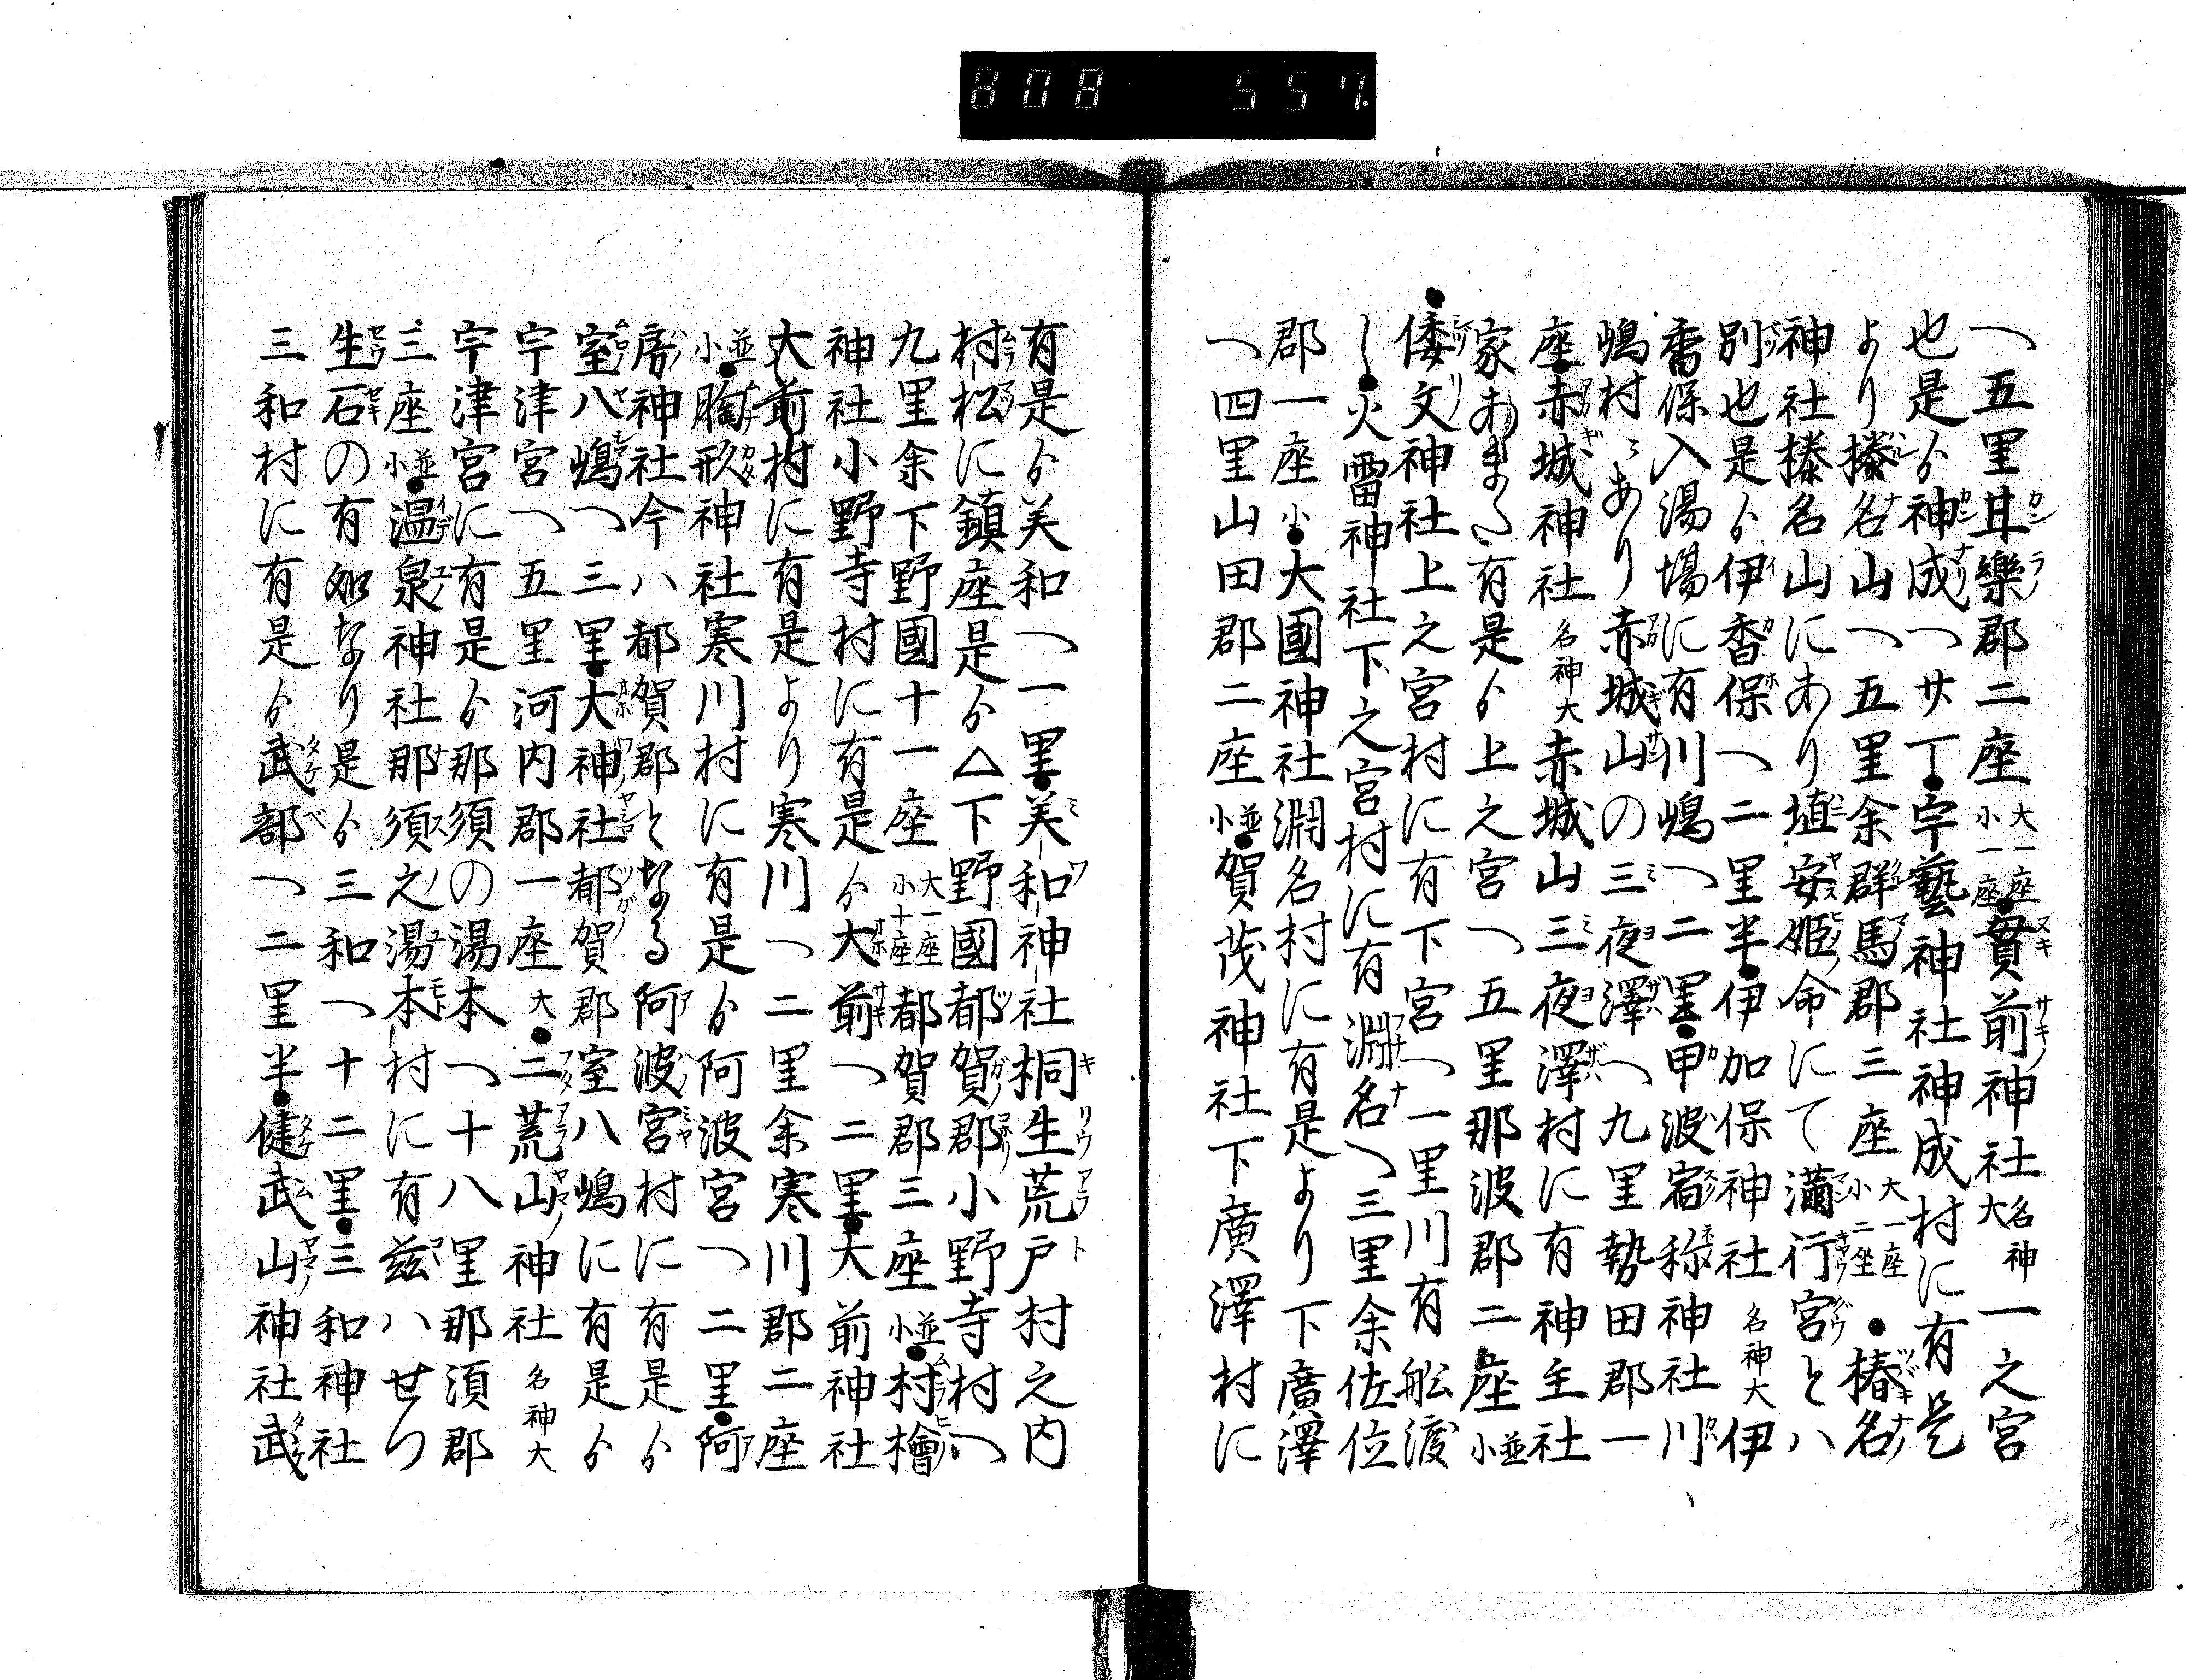 808 557.
へ五里甘樂郡二座大一座小一座●貫前神社名神大一之宮
也是ゟ神成へ廿丁●宇藝神社神成村に有是
より榛名山へ五里余群馬郡三座大一座小二坐●椿名
神社榛名山にあり埴安姫命にて満行宮とハ
別也是ゟ伊香保へ二里半●伊加保神社名神大伊
香保入湯場に有川嶋へ二里●甲波宿祢神社川
嶋村ニあり赤城山の三夜澤へ九里勢田郡一
座●赤城神社名神大赤城山三夜澤村に有神主社
家あまた有是ゟ上之宮へ五里那波郡二座並小
●倭文神社上之宮村に有下宮へ一里川有舩渡
し●火雷神社下之宮村に有淵名へ三里余佐位
郡一座小●大國神社淵名村に有是より下廣澤
へ四里山田郡二座並小●賀茂神社下廣澤村に
有是ゟ美和へ一里●美和神社桐生荒戸村之内
村松に鎮座是ゟ△下野國都賀郡小野寺村へ
九里余下野國十一座大一座小十座都賀郡三座並小●村檜
神社小野寺村に有是ゟ大前へ二里●大前神社
大前村に有是より寒川へ二里余寒川郡二座
並小●胸形神社寒川村に有是ゟ阿波宮へ二里●阿
房神社今ハ都賀郡となる阿波宮村に有是ゟ
室八嶋へ三里●大神社都賀郡室八嶋に有是ゟ
宇津宮へ五里河内郡一座大●二荒山神社名神大
宇津宮に有是ゟ那須の湯本へ十八里那須郡
三座並小●温泉神社那須之湯本村に有茲ハせつ
生石の有処なり是ゟ三和へ十二里●三和神社
三和村に有是ゟ武部へ二里半●健武山神社武